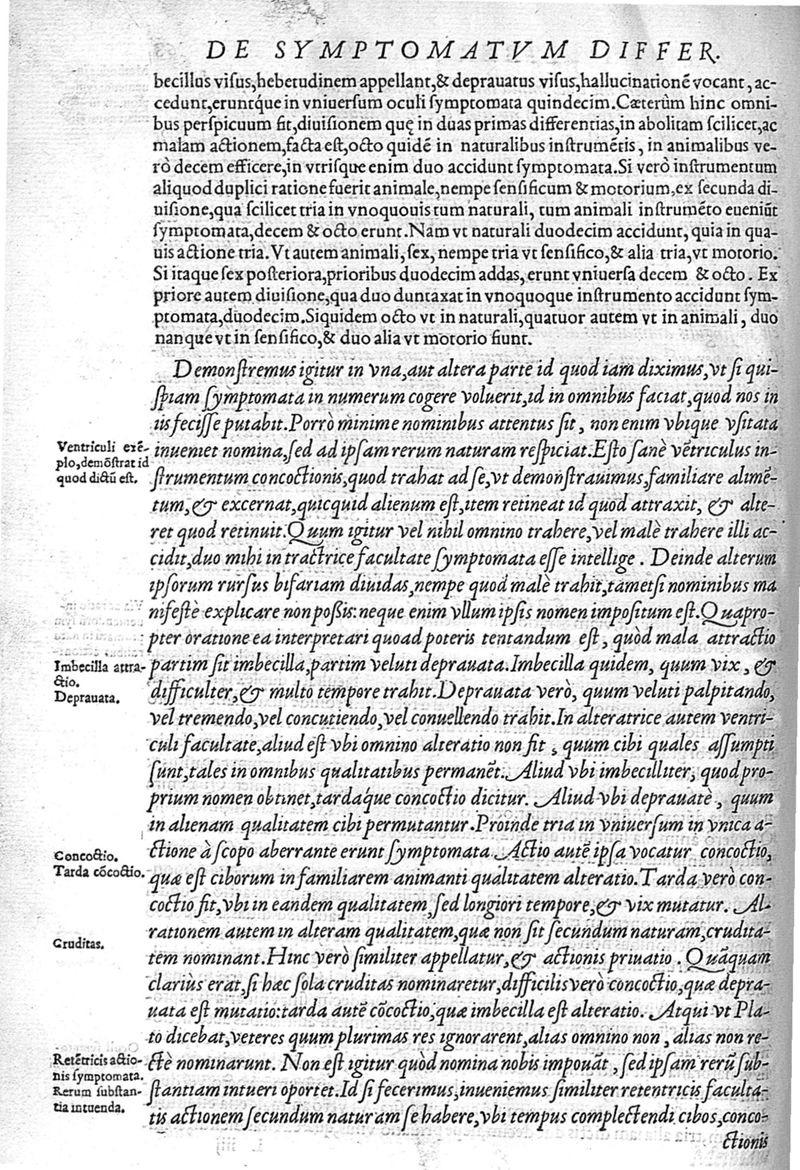 DE SYMPTOMATVM DIFFER.
becillus visus,hebetudinem appellant,& deprauatus visus,hallucinationē vocant, ac-
cedunt,eruntq́ue in vniuersum oculi symptomata quindecim.Cæterùm hinc omni-
bus perspicuum fit,diuisionem quę in duas primas differentias,in abolitam scilicet,ac
malam actionem,facta est,octo quidē in naturalibus instrumētis, in animalibus ve-
rò decem efficere,in vtrisque enim duo accidunt symptomata.Si verò instrumentum
aliquod duplici ratione fuerit animale,nempe sensificum & motorium,ex secunda di-
uisione,qua scilicet tria in vnoquouis tum naturali, tum animali instrumēto eueniūt
symptomata,decem & octo erunt.Nam vt naturali duodecim accidunt, quia in qua-
uis actione tria.Vt autem animali,sex, nempe tria vt sensifico,& alia tria,vt motorio.
Si itaque sex posteriora,prioribus duodecim addas,erunt vniuersa decem & octo. Ex
priore autem diuisione,qua duo duntaxat in vnoquoque instrumento accidunt sym-
ptomata,duodecim.Siquidem octo vt in naturali,quatuor autem vt in animali, duo
nanque vt in sensifico,& duo alia vt motorio fiunt.
Demonstremus igitur in vna,aut altera parte id quod iam diximus,vt si qui-
spiam symptomata in numerum cogere voluerit,id in omnibus faciat,quod nos in
iis fecisse putabit.Porrò minime nominibus attentus sit, non enim vbique vsitata
Ventriculi exē-
plo,demōstrat id
quod dictū est.
inueniet nomina,sed ad ipsam rerum naturam respiciat.Esto sanè vētriculus in-
strumentum concoctionis,quod trahat ad se,vt demonstrauimus,familiare alimē-
tum,& excernat,quicquid alienum est,item retineat id quod attraxit, & alte-
ret quod retinuit.Quum igitur vel nihil omnino trahere,vel malè trahere illi ac-
cidit,duo mihi in tractrice facultate symptomata esse intellige. Deinde alterum
ipsorum rursus bifariam diuidas,nempe quod malè trahit,tametsi nominibus ma
nifestè explicare non possis:neque enim vllum ipsis nomen impositum est.Quapro-
pter oratione ea interpretari quoad poteris tentandum est, quòd mala attractio
Imbecilla attra-
ctio.
Deprauata.
partim sit imbecilla,partim veluti deprauata.Imbecilla quidem, quum vix, &
difficulter,& multo tempore trahit.Deprauata verò, quum veluti palpitando,
vel tremendo,vel concutiendo,vel conuellendo trahit.In alteratrice autem ventri-
culi facultate,aliud est vbi omnino alteratio non fit, quum cibi quales assumpti
sunt,tales in omnibus qualitatibus permanēt.Aliud vbi imbecilliter, quod pro-
prium nomen obtinet,tardaq́ue concoctio dicitur. Aliud vbi deprauatè, quum
in alienam qualitatem cibi permutantur.Proinde tria in vniuersum in vnica a-
Concoctio.
Tarda cōcoctio.
ctione à scopo aberrante erunt symptomata.Actio autē ipsa vocatur concoctio,
quæ est ciborum in familiarem animanti qualitatem alteratio.Tarda verò con-
coctio fit,vbi in eandem qualitatem,sed longiori tempore,& vix mutatur. Al-
rationem autem in alteram qualitatem,quæ non sit secundum naturam,crudita-
Cruditas.
tem nominant.Hinc verò similiter appellatur,& actionis priuatio. Quāquam
clarius erat,si hæc sola cruditas nominaretur,difficilis verò concoctio,quæ depra-
uata est mutatio:tarda autē cōcoctio,quæ imbecilla est alteratio. Atqui vt Pla-
to dicebat,veteres quum plurimas res ignorarent,alias omnino non, alias non re-
Retētricis actio-
nis symptomata.
Rerum substan-
tia intuenda.
ctè nominarunt. Non est igitur quòd nomina nobis impouāt, sed ipsam rerū sub-
stantiam intueri oportet.Id si fecerimus,inueniemus similiter retentricis faculta-
tis actionem secundum naturam se habere,vbi tempus complectendi cibos,conco-
ctionis